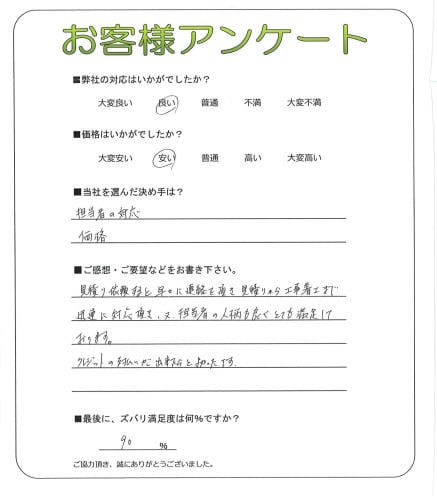 お客様アンケート
■弊社の対応はいかがでしたか？
大変良い 良い 普通 不満 大変不満
■価格はいかがでしたか？
大変安い 安い 普通 高い 大変高い
■当社を選んだ決め手は？
担当者の対応
価格
■ご感想・ご要望などをお書き下さい。
見積り依頼後と早々に連絡を頂き見積りから工事着工まで
迅速に対応頂き、又、担当者の人柄も良くとても満足して
おります。
クレジットの支払いが出来ると助かったです
■最後に、ズバリ満足度は何%ですか？
90 %
ご協力頂き、誠にありがとうございました。